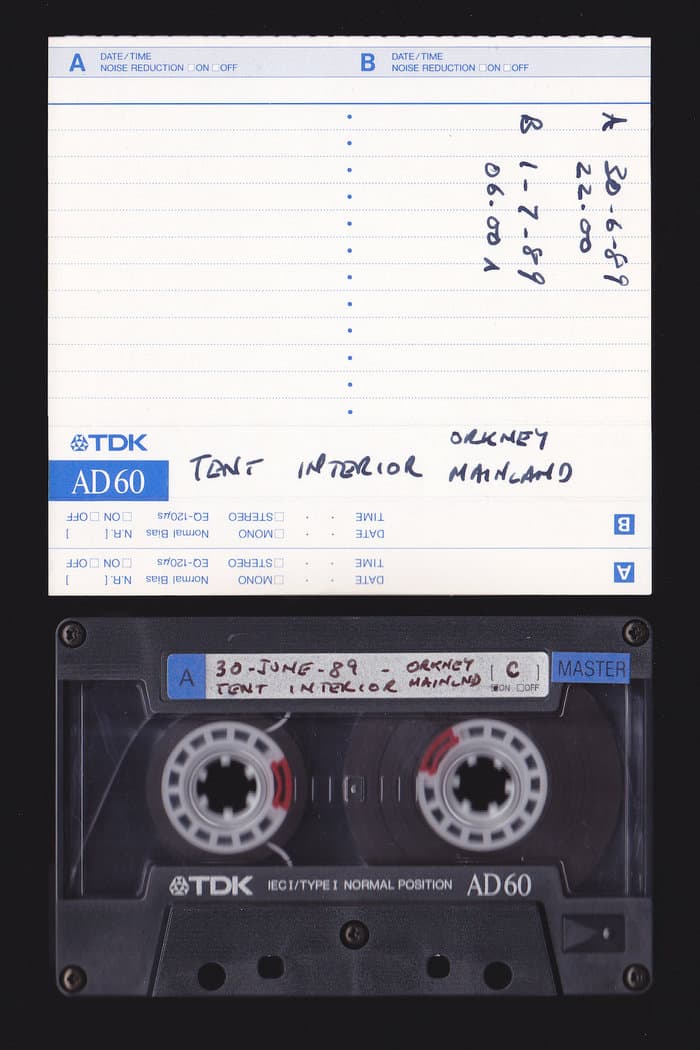 A DATE/TIME B DATE/TIME
NOISE REDUCTION □ON □OFF NOISE REDUCTION □ON □OFF
A 30-6-89
22.00
B 1-7-89
06.00
TDK
AD60
TENT INTERIOR ORKNEY
MAINLAND
B
TIME · · □STEREO EQ-120µs □ON □OFF
DATE □MONO Normal Bias N.R. [ ]
A
TIME · · □STEREO EQ-120µs □ON □OFF
DATE □MONO Normal Bias N.R. [ ]
A 30-JUNE-89 - ORKNEY [ C ] MASTER
TENT INTERIOR MAINLND ON □OFF
TDK IEC I/TYPE I NORMAL POSITION AD60